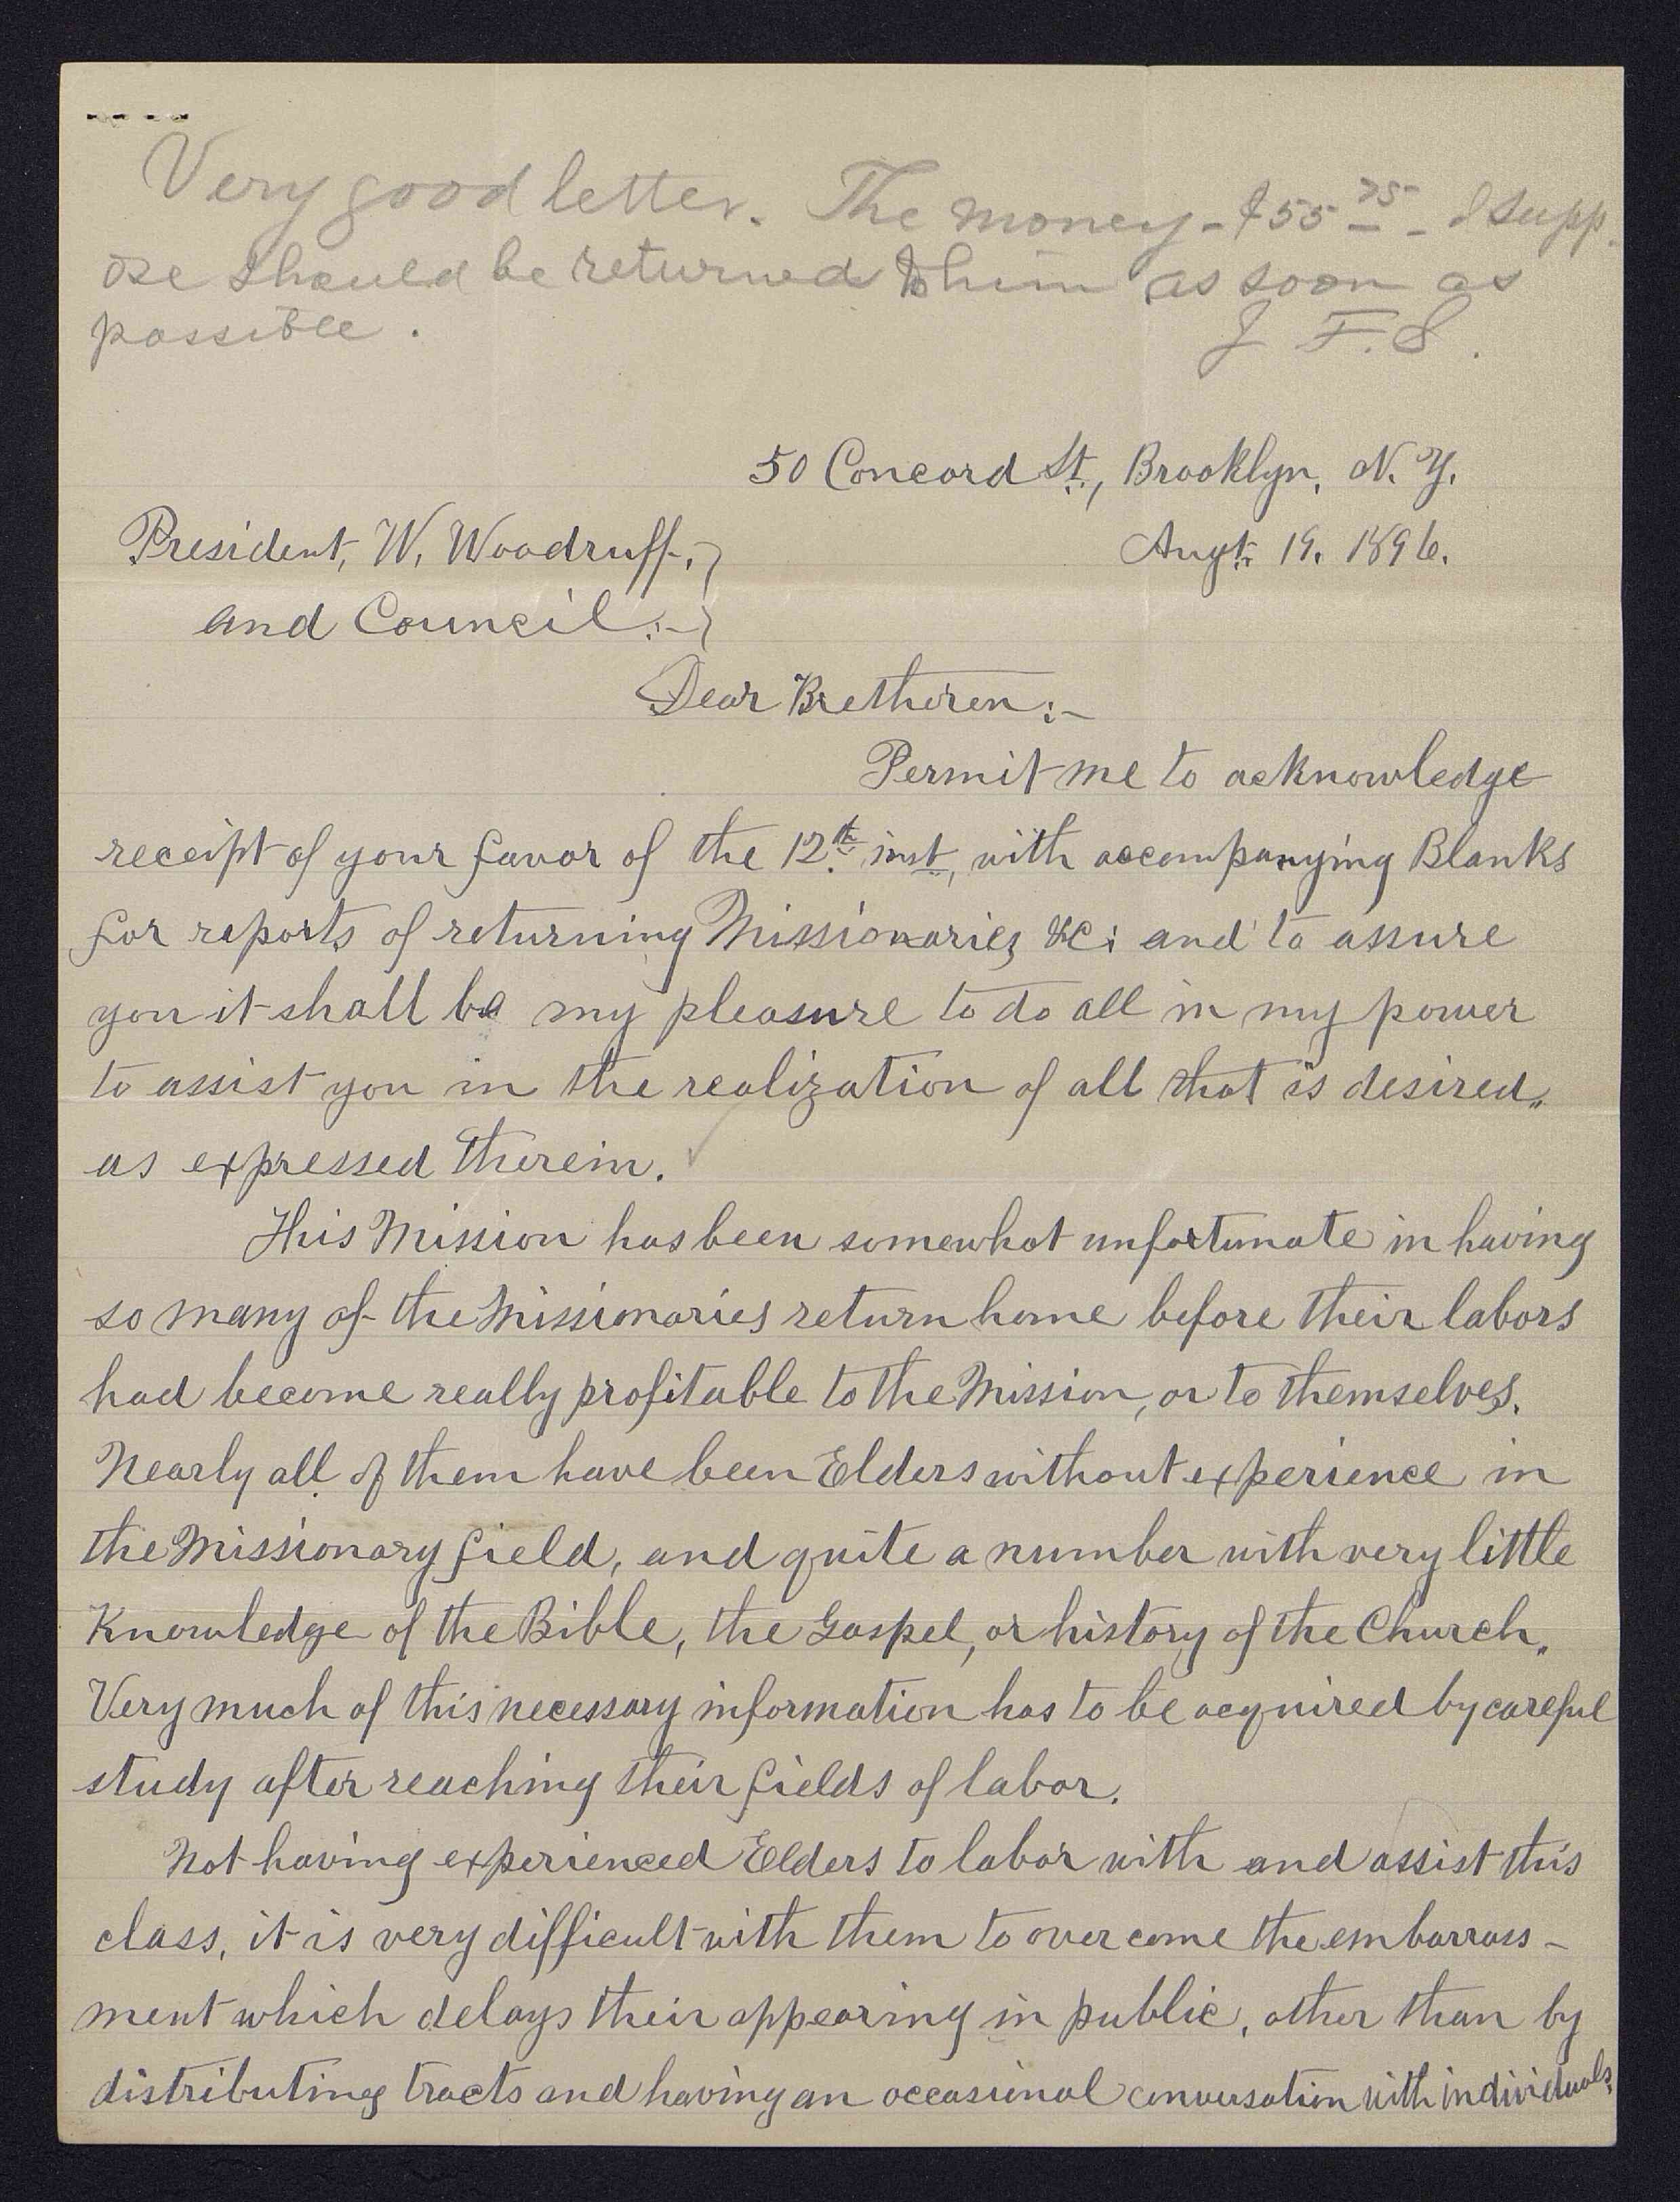 Very good letter. The money - $55 75 - I supp
ose should be returned to him as soon as
possible. J F. S.
50 Concord St., Brooklyn, N. Y.
President, W. Woodruff,
Augt. 19. 1896.
and Council:-
Dear Bretheren:-
Permit me to acknowledge
receipt of your favor of the 12th inst, with accompanying Blanks
for reports of returning Missionaries &c; and to assure
you it shall be my pleasure to do all in my power
to assist you in the realization of all that is desired,
as expressed therein.
This Mission has been somewhat unfortunate in having
so many of the Missionaries return home before their labors
had become really profitable to the Mission, or to themselves.
Nearly all of them have been Elders without experience in
the Missionary field, and quite a number with very little
Knowledge of the Bible, the Gospel, or history of the Church.
Very much of this necessary information has to be acquired by careful
study after reaching their fields of labor.
Not having experienced Elders to labor with and assist this
class, it is very difficult with them to over come the embarrass-
ment which delays their appearing in public, other than by
distributing tracts and having an occasional conversation with individuals.